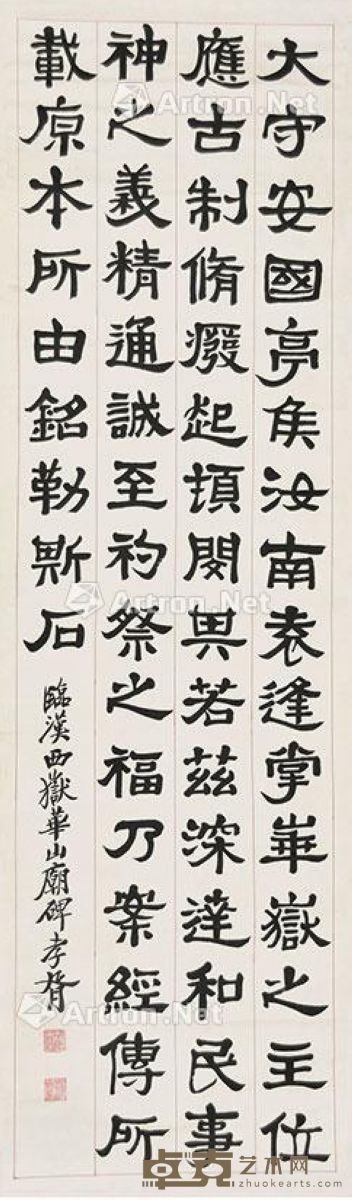 大守安國亭矦汝南袁逢掌崋嶽之主位
應古制脩癈起頓閔其若茲深達和民事
神之義精通誠至礿祭之福乃案經傳所
載原本所由銘勒斯石
臨漢西嶽華山廟碑孝胥
Artron.Net
Artron.Net
Artron.Net
Artron.Net
Artron.Net
Artron.Net
Artron.Net
Artron.Net
卓克艺术网
www.zhuokearts.com